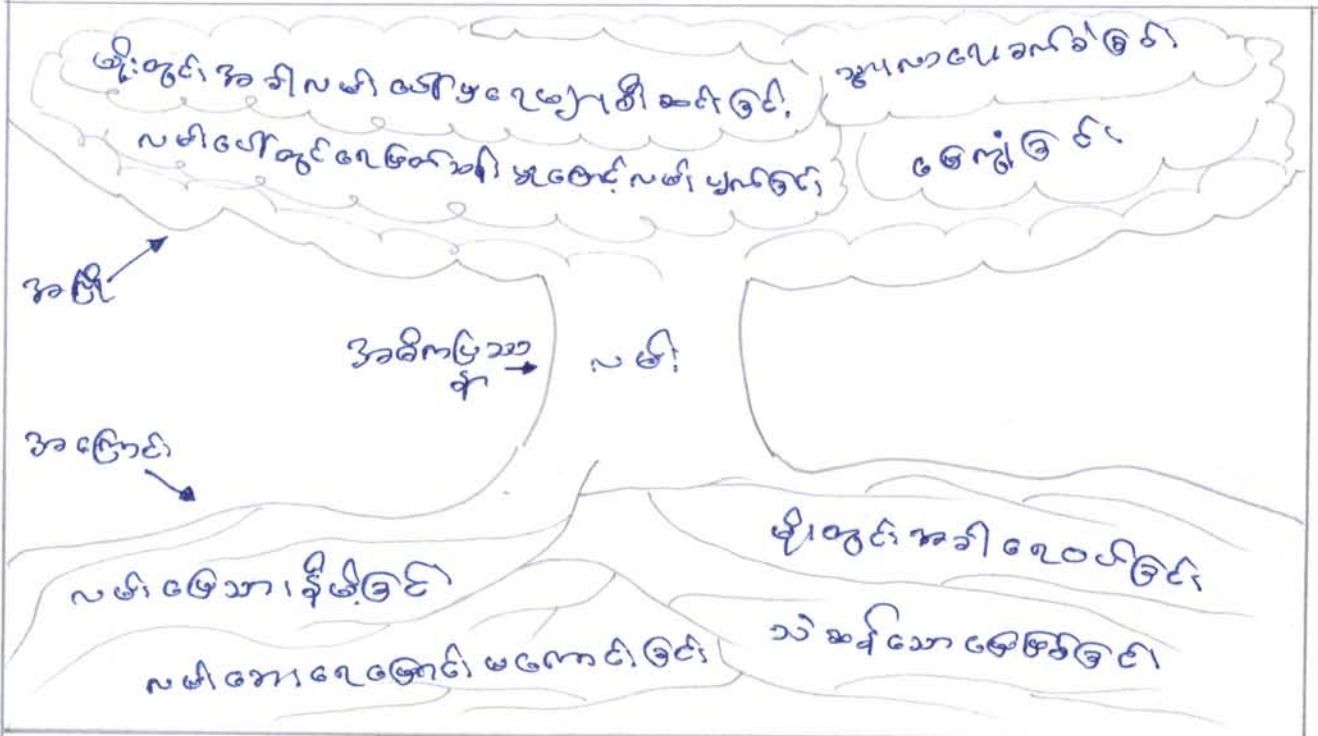 မိုးတွင်း အခါ လမ်း ပေါ်မှ ရေများ စီး ဆင်းခြင်း
လမ်းပေါ်တွင် ရေဖြတ်သန်း မှုကြောင့် လမ်း ပျက်ခြင်း
သွားလာရေး ခက်ခဲခြင်း
မြေကျုံခြင်း
အမြို့
အဓိကပြဿ
နာ
လမ်း
အကြောင်း
လမ်း မြေသား နိမ့်ခြင်
လမ်းဘေး ရေမြောင်း မကောင်းခြင်း
မိုးတွင်း အခါ ရေဝပ်ခြင်း
သဲဆန်သော မြေဖြစ်ခြင်း